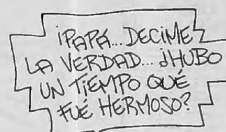 ¡PAPÁ... DECIME
LA VERDAD... ¿HUBO
UN TIEMPO QUÉ
FUÉ HERMOSO?